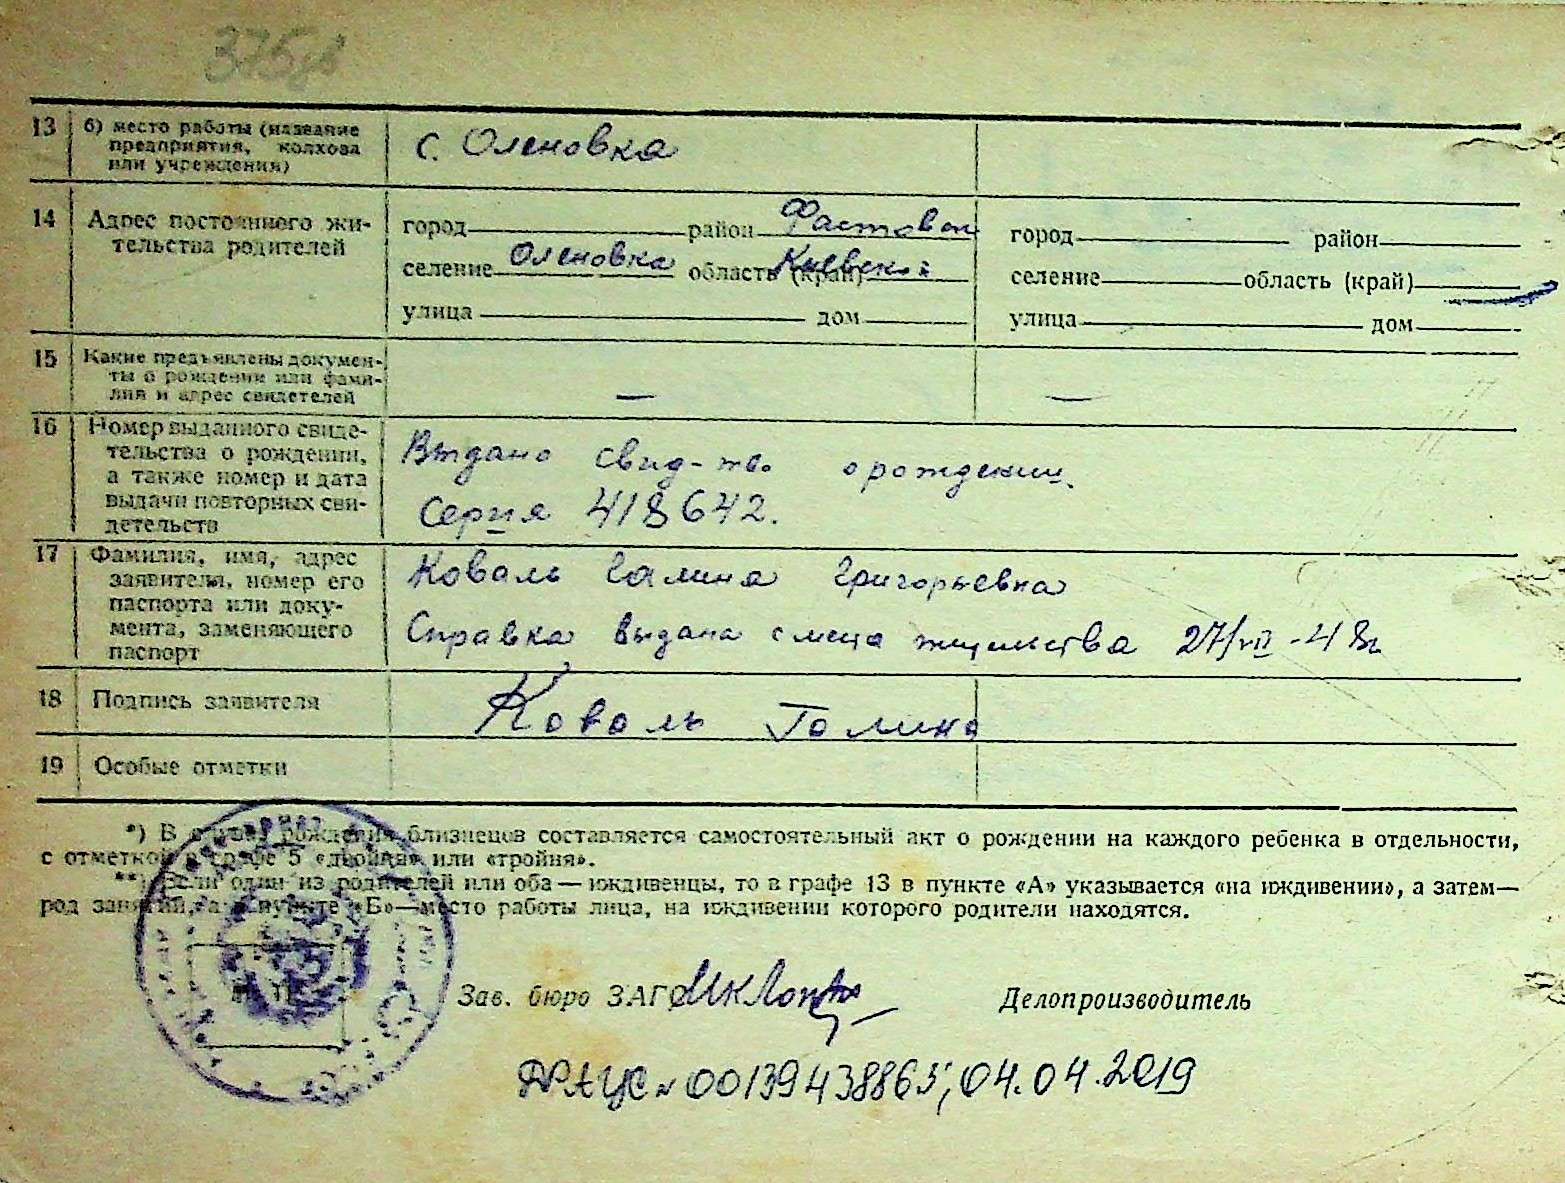 375
13 б) место работы (название
предприятия, колхоза
или учреждения)
с. Оленовка
14 Адрес постоянного жи-
тельства родителей
город район Фастовск
селение Оленовка область (край) Киевской
улица дом
город район
селение область (край)
улица дом
15 Какие предъявлены докумен-
ты о рождении или фами-
лия и адрес свидетелей
— —
16 Номер выданного свиде-
тельства о рождении,
а также номер и дата
выдачи повторных сви-
детельств
Выдано свид-тво о рождении.
Серия 418642.
17 Фамилия, имя, адрес
заявителя, номер его
паспорта или доку-
мента, заменяющего
паспорт
Коваль Галина Григорьевна
Справка выдана с места жительства 27/VII-48г
18 Подпись заявителя
Коваль Галина
19 Особые отметки
*) В случае рождения близнецов составляется самостоятельный акт о рождении на каждого ребенка в отдельности,
с отметкой в графе 5 «двойня» или «тройня».
**) Если один из родителей или оба — иждивенцы, то в графе 13 в пункте «А» указывается «на иждивении», а затем —
род занятий, а в пункте «Б» — место работы лица, на иждивении которого родители находятся.
Зав. бюро ЗАГС Делопроизводитель
ДРАЦС № 00139438865; 04.04.2019